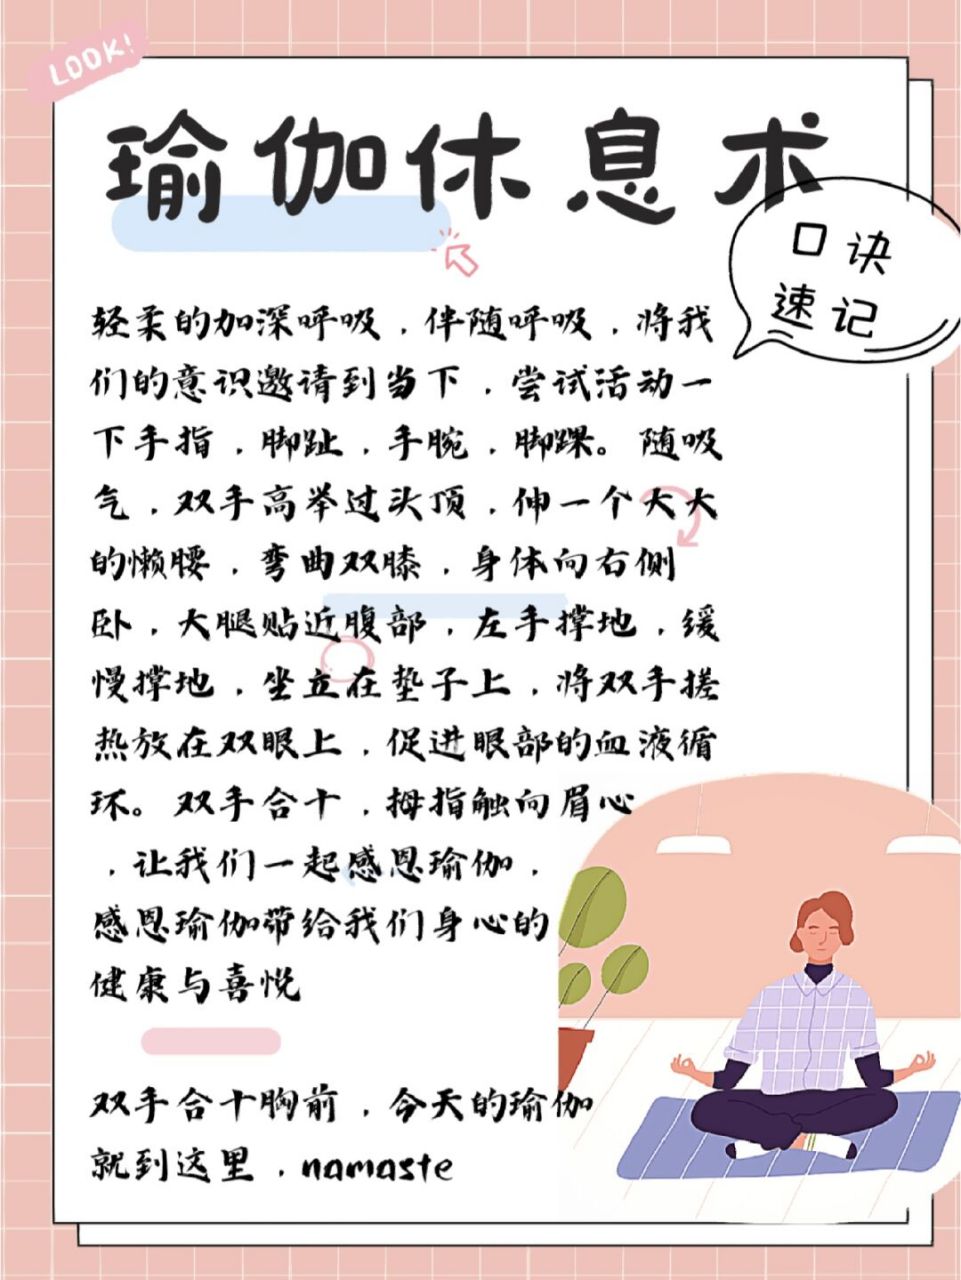 LOOK!
瑜伽休息术
口诀
速记
轻柔的加深呼吸，伴随呼吸，将我
们的意识邀请到当下，尝试活动一
下手指，脚趾，手腕，脚踝。随吸
气，双手高举过头顶，伸一个大大
的懒腰，弯曲双膝，身体向右侧
卧，大腿贴近腹部，左手撑地，缓
慢撑地，坐立在垫子上，将双手搓
热放在双眼上，促进眼部的血液循
环。双手合十，拇指触向眉心
，让我们一起感恩瑜伽，
感恩瑜伽带给我们身心的
健康与喜悦
双手合十胸前，今天的瑜伽
就到这里，namaste